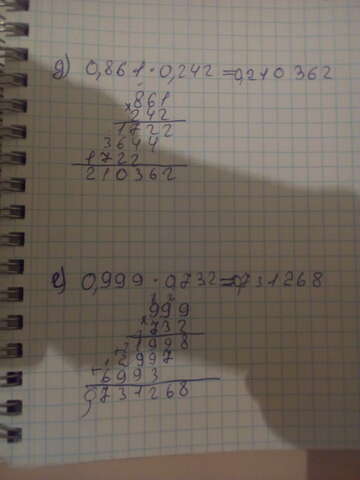 д) 0,861 · 0,242 = 0,210362
861
× 242
1722
3644
1722
210362
е) 0,999 · 0,732 = 0,731268
999
× 732
1998
+ 2997
6993
0,731268